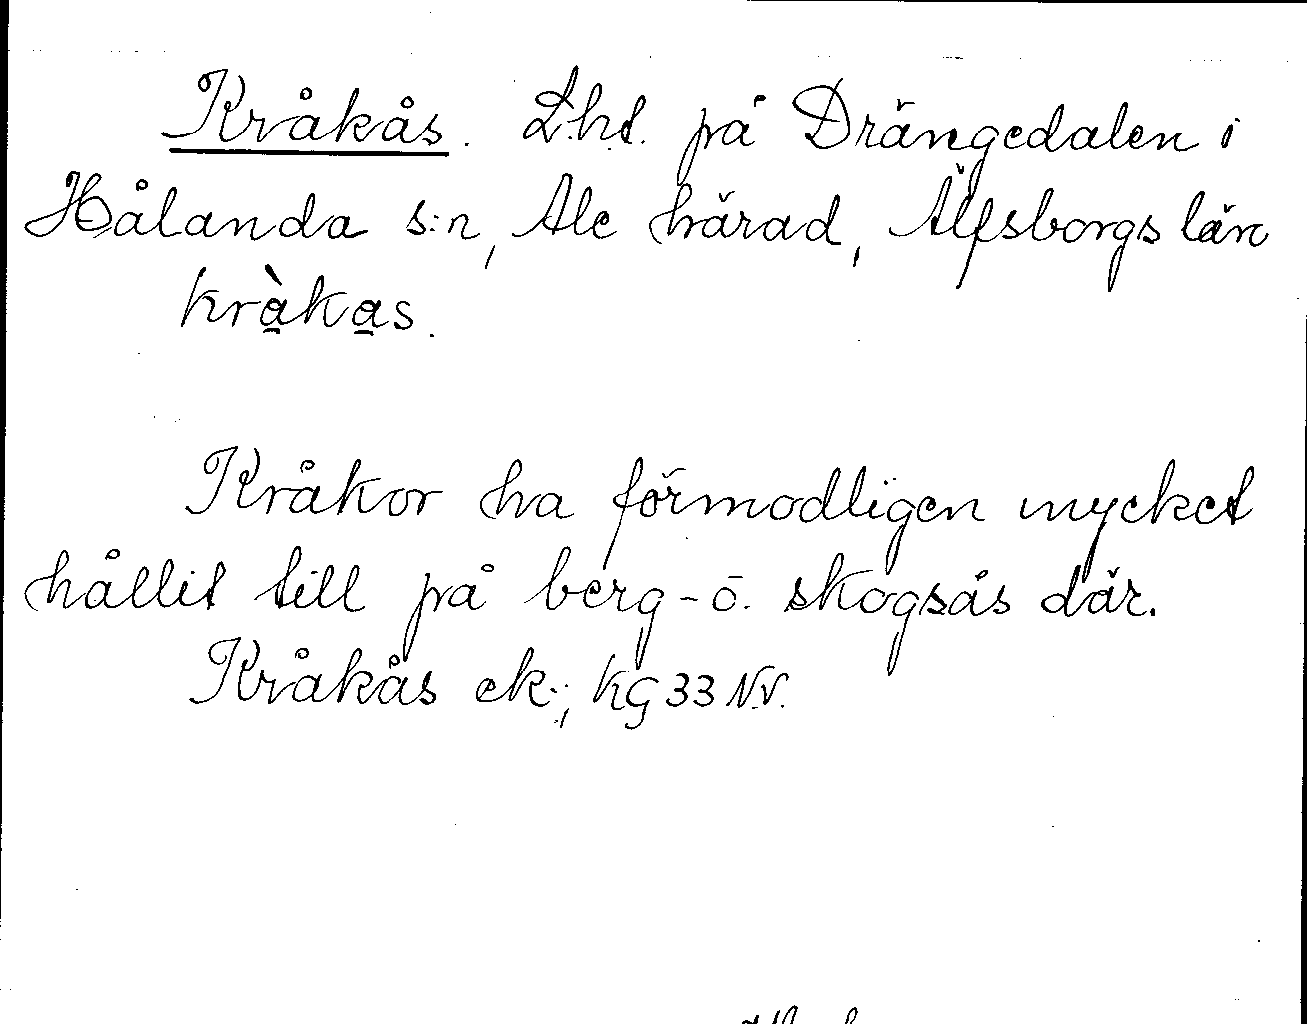 Kråkås. Lht. på Drängedalen i
Hålanda s:n, Ale härad, Älfsborgs län
krà̱ka̱s.
Kråkor ha förmodligen mycket
hållit till på berg- o. skogsås där.
Kråkås ek.; KG 33 NV.